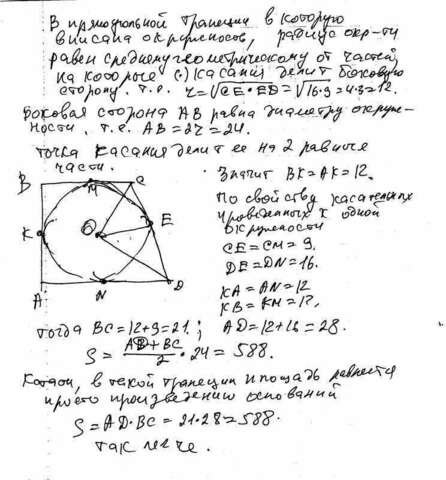 В прямоугольной трапеции в которую
вписана окружность, радиус окр-ти
равен среднему геометрическому от частей,
на которые (·) касания делит боковую
сторону. т.е. r=√CE·ED=√16·9=4·3=12.
Боковая сторона AB равна диаметру окруж-
ности. т.е. AB=2r=24.
Точка касания делит её на 2 равные
части.
Значит BK=AK=12.
По свойству касательных
проведённых к одной
окружности
CE=CM=9.
DE=DN=16.
KA=AN=12
KB=KM=12.
B
M
C
K
O
E
A
N
D
тогда BC=12+9=21; AD=12+16=28.
S=AD+BC/2·24=588.
Кстати, в такой трапеции площадь равняется
просто произведению оснований
S=AD·BC=21·28=588.
так легче.